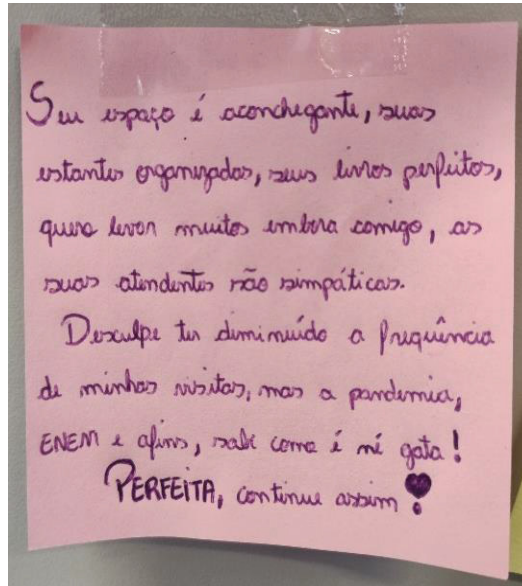 Seu espaço é aconchegante, suas
estantes organizadas, seus livros perfeitos,
quero levar muitos embora comigo, as
suas atendentes são simpáticas.
Desculpe ter diminuído a frequência
de minhas visitas, mas a pandemia,
ENEM e afins, sabe como é né gata!
PERFEITA, continue assim!